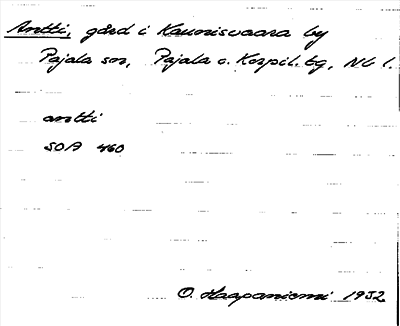 Antti, gård i Kaunisvaara by
Pajala sn, Pajala o. Korpil. tg, Nb l.
antti
SOA 460
O. Haapaniemi 1932